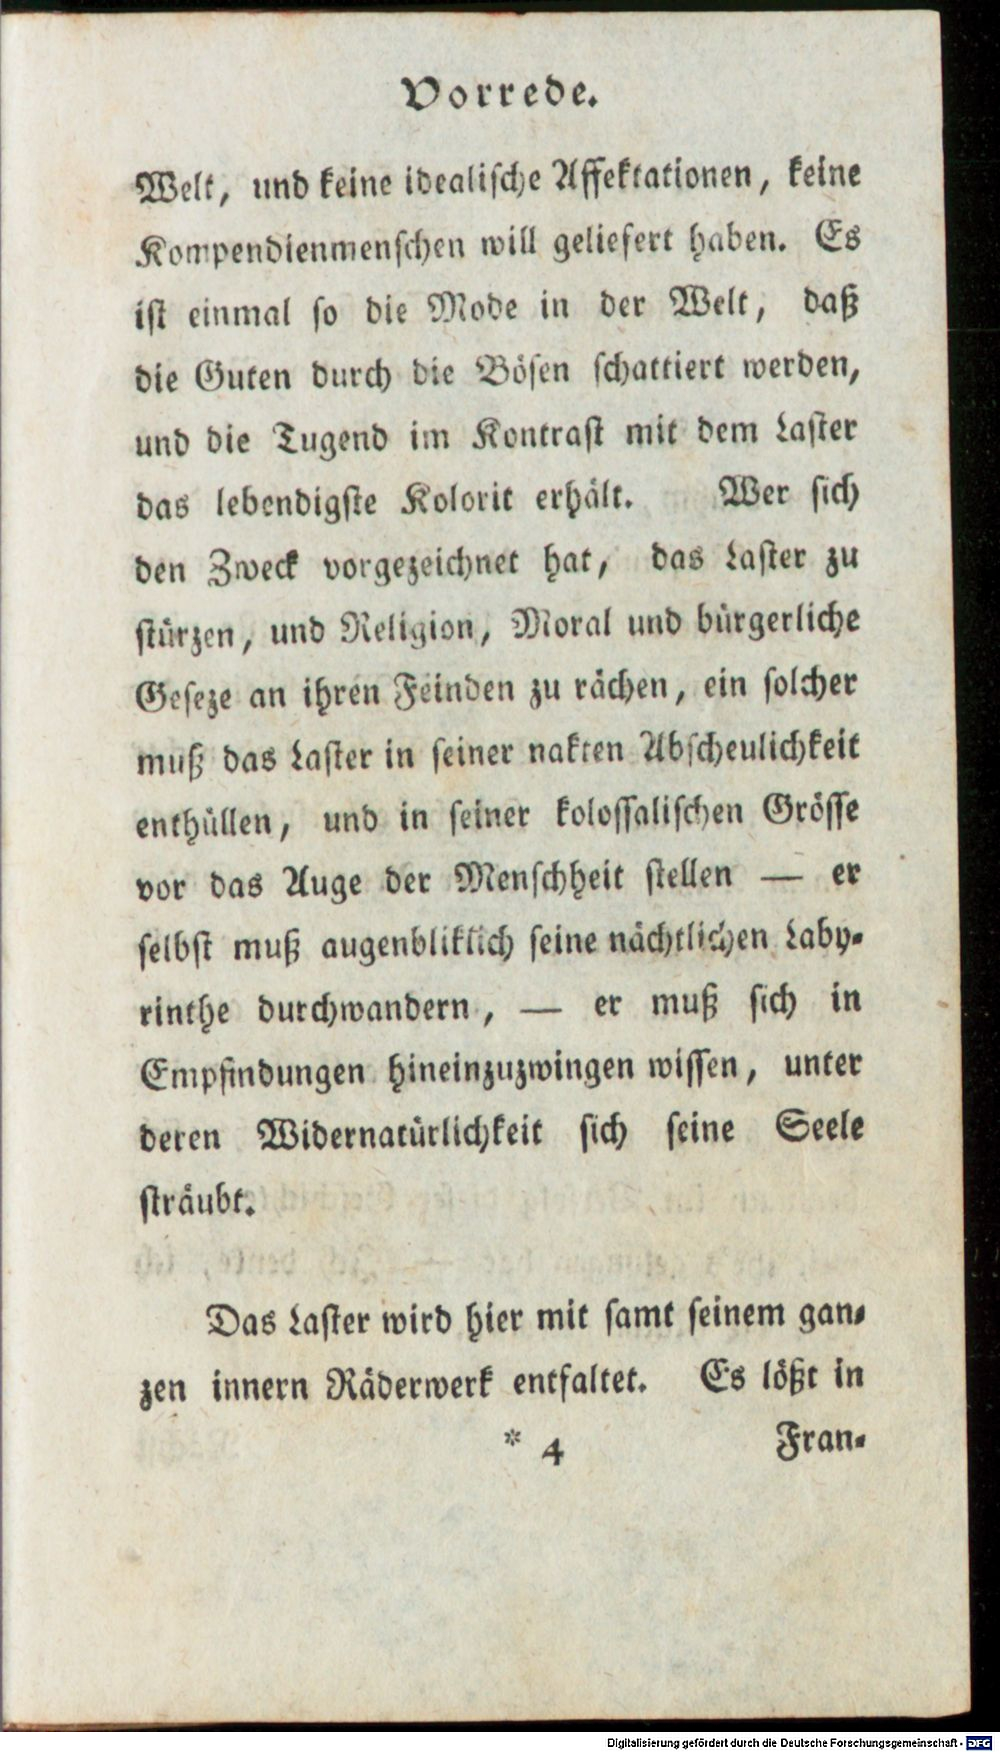 Vorrede.
Welt, und keine idealische Affektationen, keine
Kompendienmenschen will geliefert haben. Es
ist einmal so die Mode in der Welt, daß
die Guten durch die Bösen schattiert werden,
und die Tugend im Kontrast mit dem Laster
das lebendigste Kolorit erhält. Wer sich
den Zweck vorgezeichnet hat, das Laster zu
stürzen, und Religion, Moral und bürgerliche
Geseze an ihren Feinden zu rächen, ein solcher
muß das Laster in seiner nakten Abscheulichkeit
enthüllen, und in seiner kolossalischen Grösse
vor das Auge der Menschheit stellen — er
selbst muß augenbliklich seine nächtlichen Laby-
rinthe durchwandern, — er muß sich in
Empfindungen hineinzuzwingen wissen, unter
deren Widernatürlichkeit sich seine Seele
sträubt.
Das Laster wird hier mit samt seinem gan-
zen innern Räderwerk entfaltet. Es lößt in
* 4 Fran-
Digitalisierung gefördert durch die Deutsche Forschungsgemeinschaft - DFG